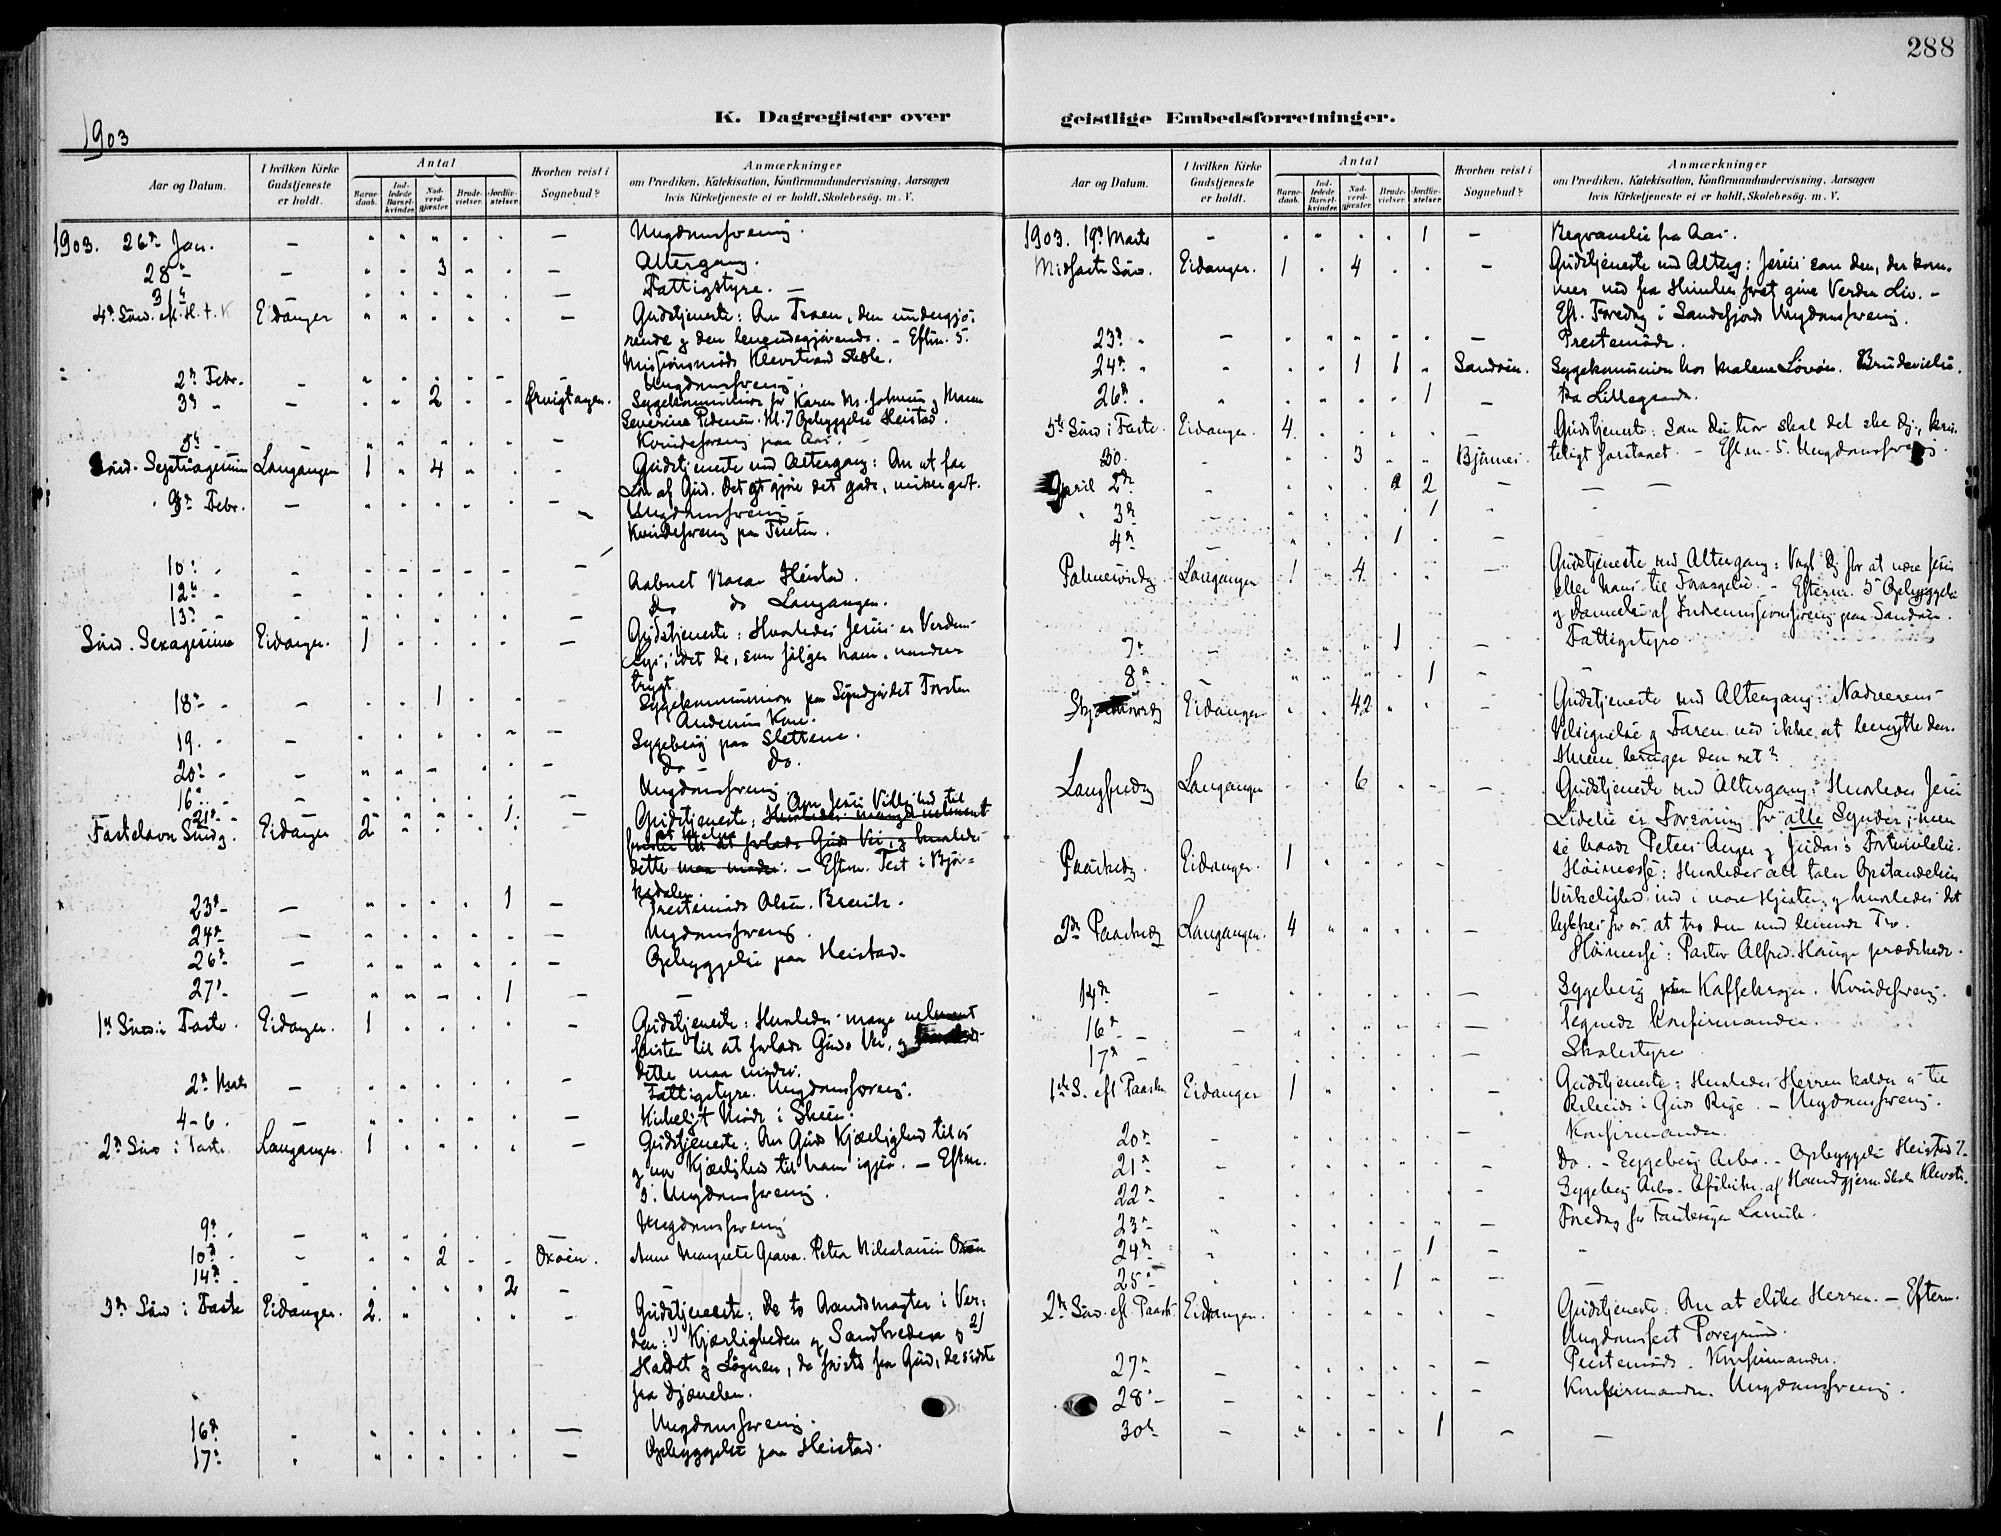 288
K. Dagregister over geistlige Embedsforretninger.
1903
Aar og Datum. I hvilken Kirke Gudstjeneste er holdt. Antal Barnedaab. Indledede Barselkvinder. Nadverdgjæster. Brudevielser. Jordfæstelser. Hvorhen reist i Sognebud? Anmærkninger om Prædiken, Katekisation, Konfirmandundervisning, Aarsagen hvis Kirketjeneste ei er holdt, Skolebesög. m. V.
1903. 26de Jan. — " " " " " — Ungdomsforening.
28de — — " " 3 " " — Altergang.
31te " " " " " — Fattigstyre. —
4de Sønd. eft. H. t. K Eidanger " " " " " — Gudstjeneste: Om Troen, den undergjö-
rende og den  — Eftm. 5.
Missionsmöde Klevstrand Skole.
2de Febr. — " " " " " — Ungdomsforening.
3de " — " " 2 " " Ørvigtagen. Sygekommunion for Karen M. Johnsen og Maren
Severine Pedersen. Kl. 7 Opbyggelse Heistad.
5te — " " " " " — Kvindeforening paa Aas.
Sönd. Septuagesima Langangen 1 " 4 " " — Gudstjeneste med Altergang: Om at faa
Lön af Gud. Det at gjöre det gode,
9de Febr. — " " " " " — Ungdomsforening.
Kvindeforening paa Tveten.
10de " — " " " " " —
12te " — " " " " " — Aabnet Basar Heistad.
13de " — " " " " " — do do Langangen.
Sönd. Sexagesima Eidanger. 1 " " " " — Gudstjeneste: Hvorledes Jesus er Verdens
Lys, idet de, som fölger ham, vandrer
trygt.
18de — — " " 1 " " — Sygekommunion paa Torsten
Andersens Kone.
19. — — " " " " " — Sygebesög paa Slettene.
20de — — " " " " " — do — do.
16de — — " " " " " — Ungdomsforening
21de — " " " " 1. —
Fastelavn Söndg. Eidanger 2 " " " " Gudstjeneste: Om Jesu Villighed til
at  Hvorledes mange velment
frister til at forlade Guds Vei, og hvorledes
dette maa mödes. — Eftm. Fest i Björ-
kedalen.
23de — — " " " " 1 — Prestemöde Olsen. Brevik.
24de — — " " " " " — Ungdomsforening.
26de — — " " " " " — Opbyggelse paa Heistad.
27de — — " " " " 1 — —
1ste Sönd. i Faste. Eidanger. 1 " " " " Gudstjeneste: Hvorledes mange velment
frister til at forlade Guds Vei, og hvorledes
dette maa mödes.
2de Marts — " " " " " — Fattigstyre. Ungdomsforening.
4-6. — " " " " " — Kirkeligt Möde i Skien.
2de Sönd i Faste. Langangen. 1 " " " " — Gudstjeneste: Om Guds Kjærlighed til os
og vor Kjærlighed til ham igjen. — Eftm.
5. Ungdomsforening.
9de " — " " " " " — Ungdomsforening
10de " — " " 2 " " Oxöen. Anne Margrete Grava. Peter Nikolaisen Oxöen
14de " — " " " " 2 — —
3de Sönd i Faste Eidanger. 2 " " " — Gudstjeneste: De to Aandsmagter i Ver-
den: 1) Kjærligheden og Sandheden og 2)
Hadet og Lögnen, de förste fra Gud, de sidste
fra Djævelen.
16de " " " " " " — Ungdomsforening.
17de " " " " " " — Opbyggelse paa Heistad.
Aar og Datum. I hvilken Kirke Gudstjeneste er holdt. Antal Barnedaab. Indledede Barselkvinder. Nadverdgjæster. Brudevielser. Jordfæstelser. Hvorhen reist i Sognebud? Anmærkninger om Prædiken, Katekisation, Konfirmandundervisning, Aarsagen hvis Kirketjeneste ei er holdt, Skolebesög. m. V.
1903. 19de Marts — " " " " 1 — Begravelse fra Aas.
Midfaste Sönd. Eidanger. 1 " 4 " " — Gudstjeneste med Alterg: Jesus som den, der kom-
mer ned fra Himlen for at give Verden Liv. —
Eft. Foredrag i Sandefjords Ungdomsforening.
23de " — " " " " " — Prestemöde.
24de " " " " 1 1 " Sandöen. Sygekommunion hos Malene Lövöen. Brudevielse.
26de " " " " " " 1 — fra Lillegaarden.
5te Sönd i Faste. Eidanger. 4 " " " " — Gudstjeneste: Som du tror skal det ske dig, kris-
teligt forstaaet. — Eftm. 5. Ungdomsforening.
30. — " " 3 " " Bjönnes.
April 2de " " " " 2 — — —
" 3de — " " " " 1 " "
4de — " " " 1 " — —
Palmesöndg. Langangen 1 " 4 " " — Gudstjeneste med Altergang: Vogt dig for at være Jesus
eller hans til Forargelse — Efterm. 5 Opbyggelse
og Dannelse af Indremissionsforening paa Sandöen.
7de — " " " 1 " — Fattigstyre
8de — " " " " 1 — —
Skjærtorsdg Eidanger " " 42 " " — Gudstjeneste med Altergang: Nadverens
Velsignelse og Faren ved ikke at benytte den.
Hvem bruger den ret?
Langfredg Langangen " " 6 " " — Gudstjeneste med Altergang: Hvorledes Jesu
Lidelse er Forsoning for alle Synder; men
se baade Peters Anger og Judas's Fortvivlelse.
Paaskedg. Eidanger. 1 " " " " — Höimesse: Hvorledes alt taler Opstandelsens
Virkelighed ind i vore Hjerter, og hvorledes det
lykkes for os at tro den med levende Tro.
2den Paaskedg Langangen. 4 " " " " — Höimesse: Pastor Alfred Hauge prædikede.
14de — " " " " " — Sygebesög paa Kaffekrogen. Kvindeforening.
16de — — " " " " " — Tegnede Konfirmander.
17de — — " " " " " — Skolestyre
1ste S. eft. Paaske Eidanger 1 " " " " Gudstjeneste: Hvorledes Herren kalder os til
Arbeide i Guds Rige. — Ungdomsforening.
20de — " " " " " — Konfirmander.
21de — " " " " " — Do. — Sygebesög Aarbo. — Opbyggelse Heistad 7.
22de " " " " " " Sygebesög Aarbo. Afslutn. af Haandgjern. Skole Klevstr.
23de " " " " " " — Foredrag for Larvik.
24de " " " " " 1 — —
25de " " " " 1 " —
2den Sönd. eft. Paaske Eidanger. " " " " " — Gudstjeneste: Om at elske Herren. — Efterm.
Ungdomsfest Porsgrund.
27de — " " " " " — Prestemöde. Konfirmander.
28de — — " " " " " — Konfirmander. Ungdomsforening.
30te — " " " " 1 — —